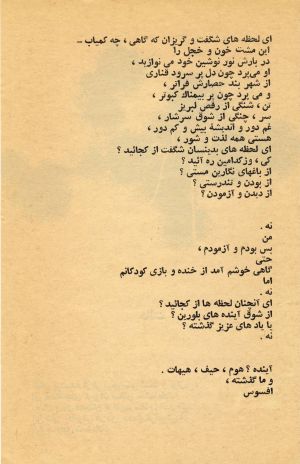 ای لحظه های شگفت و گریزان که گاهی ، چه کمیاب ــ
این مشت خون و خجل را
در بارش نور نوشین خود می نوازید ،
او می‌پرد چون دل پر سرود قناری
از شهر بند حصارش فراتر ،
و می پرد چون پر بیمناك كبوتر ،
تن ، شنگی از رقص لبریز
سر ، چنگی از شوق سرشار ،
غم دور و اندیشهٔ بیش و کم دور ،
هستی همه لذت و شور ،
ای لحظه های بدینسان شگفت از کجائید ؟
کی ، وزکدامین ره آئید ؟
از باغهای نگارین مستی ؟
از بودن و تندرستی ؟
از دیدن و آزمودن ؟
نه .
من
بس بودم و آزمودم ،
حتی
گاهی خوشم آمد از خنده و بازی کودکانم
اما
نه .
ای آنچنان لحظه ها از کجائید ؟
از شوق آینده های بلورین ؟
یا یاد های عزیز گذشته ؟
نه .
آینده ؟ هوم ، حیف ، هیهات .
و ما گذشته ،
افسوس